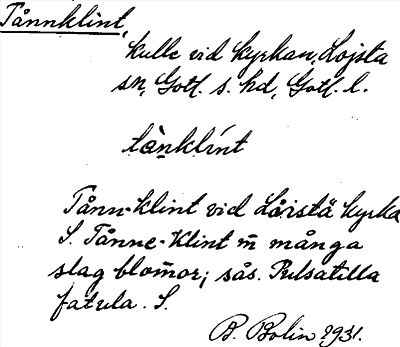 Tånnklint,
kulle vid kyrkan, Lojsta
sn, Gotl. s. hd, Gotl. l.
tå̀nklínt
Tånn-klint vid Låistä kyrka
l. Tånne-Klint m̄ många
slag blom̄or; sås. Pulsatilla
fatula. S.
B. Bolin 1931.